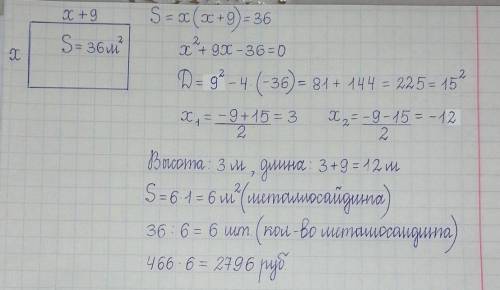 x+9
x
S=36м²
S=x(x+9)=36
x²+9x-36=0
D=9²-4(-36)=81+144=225=15²
x₁=(-9+15)/2=3 x₂=(-9-15)/2=-12
Высота: 3 м, длина: 3+9=12 м
S=6·1=6 м² (металлосайдинга)
36:6=6 шт. (кол-во металосаидинга)
466·6=2796 руб